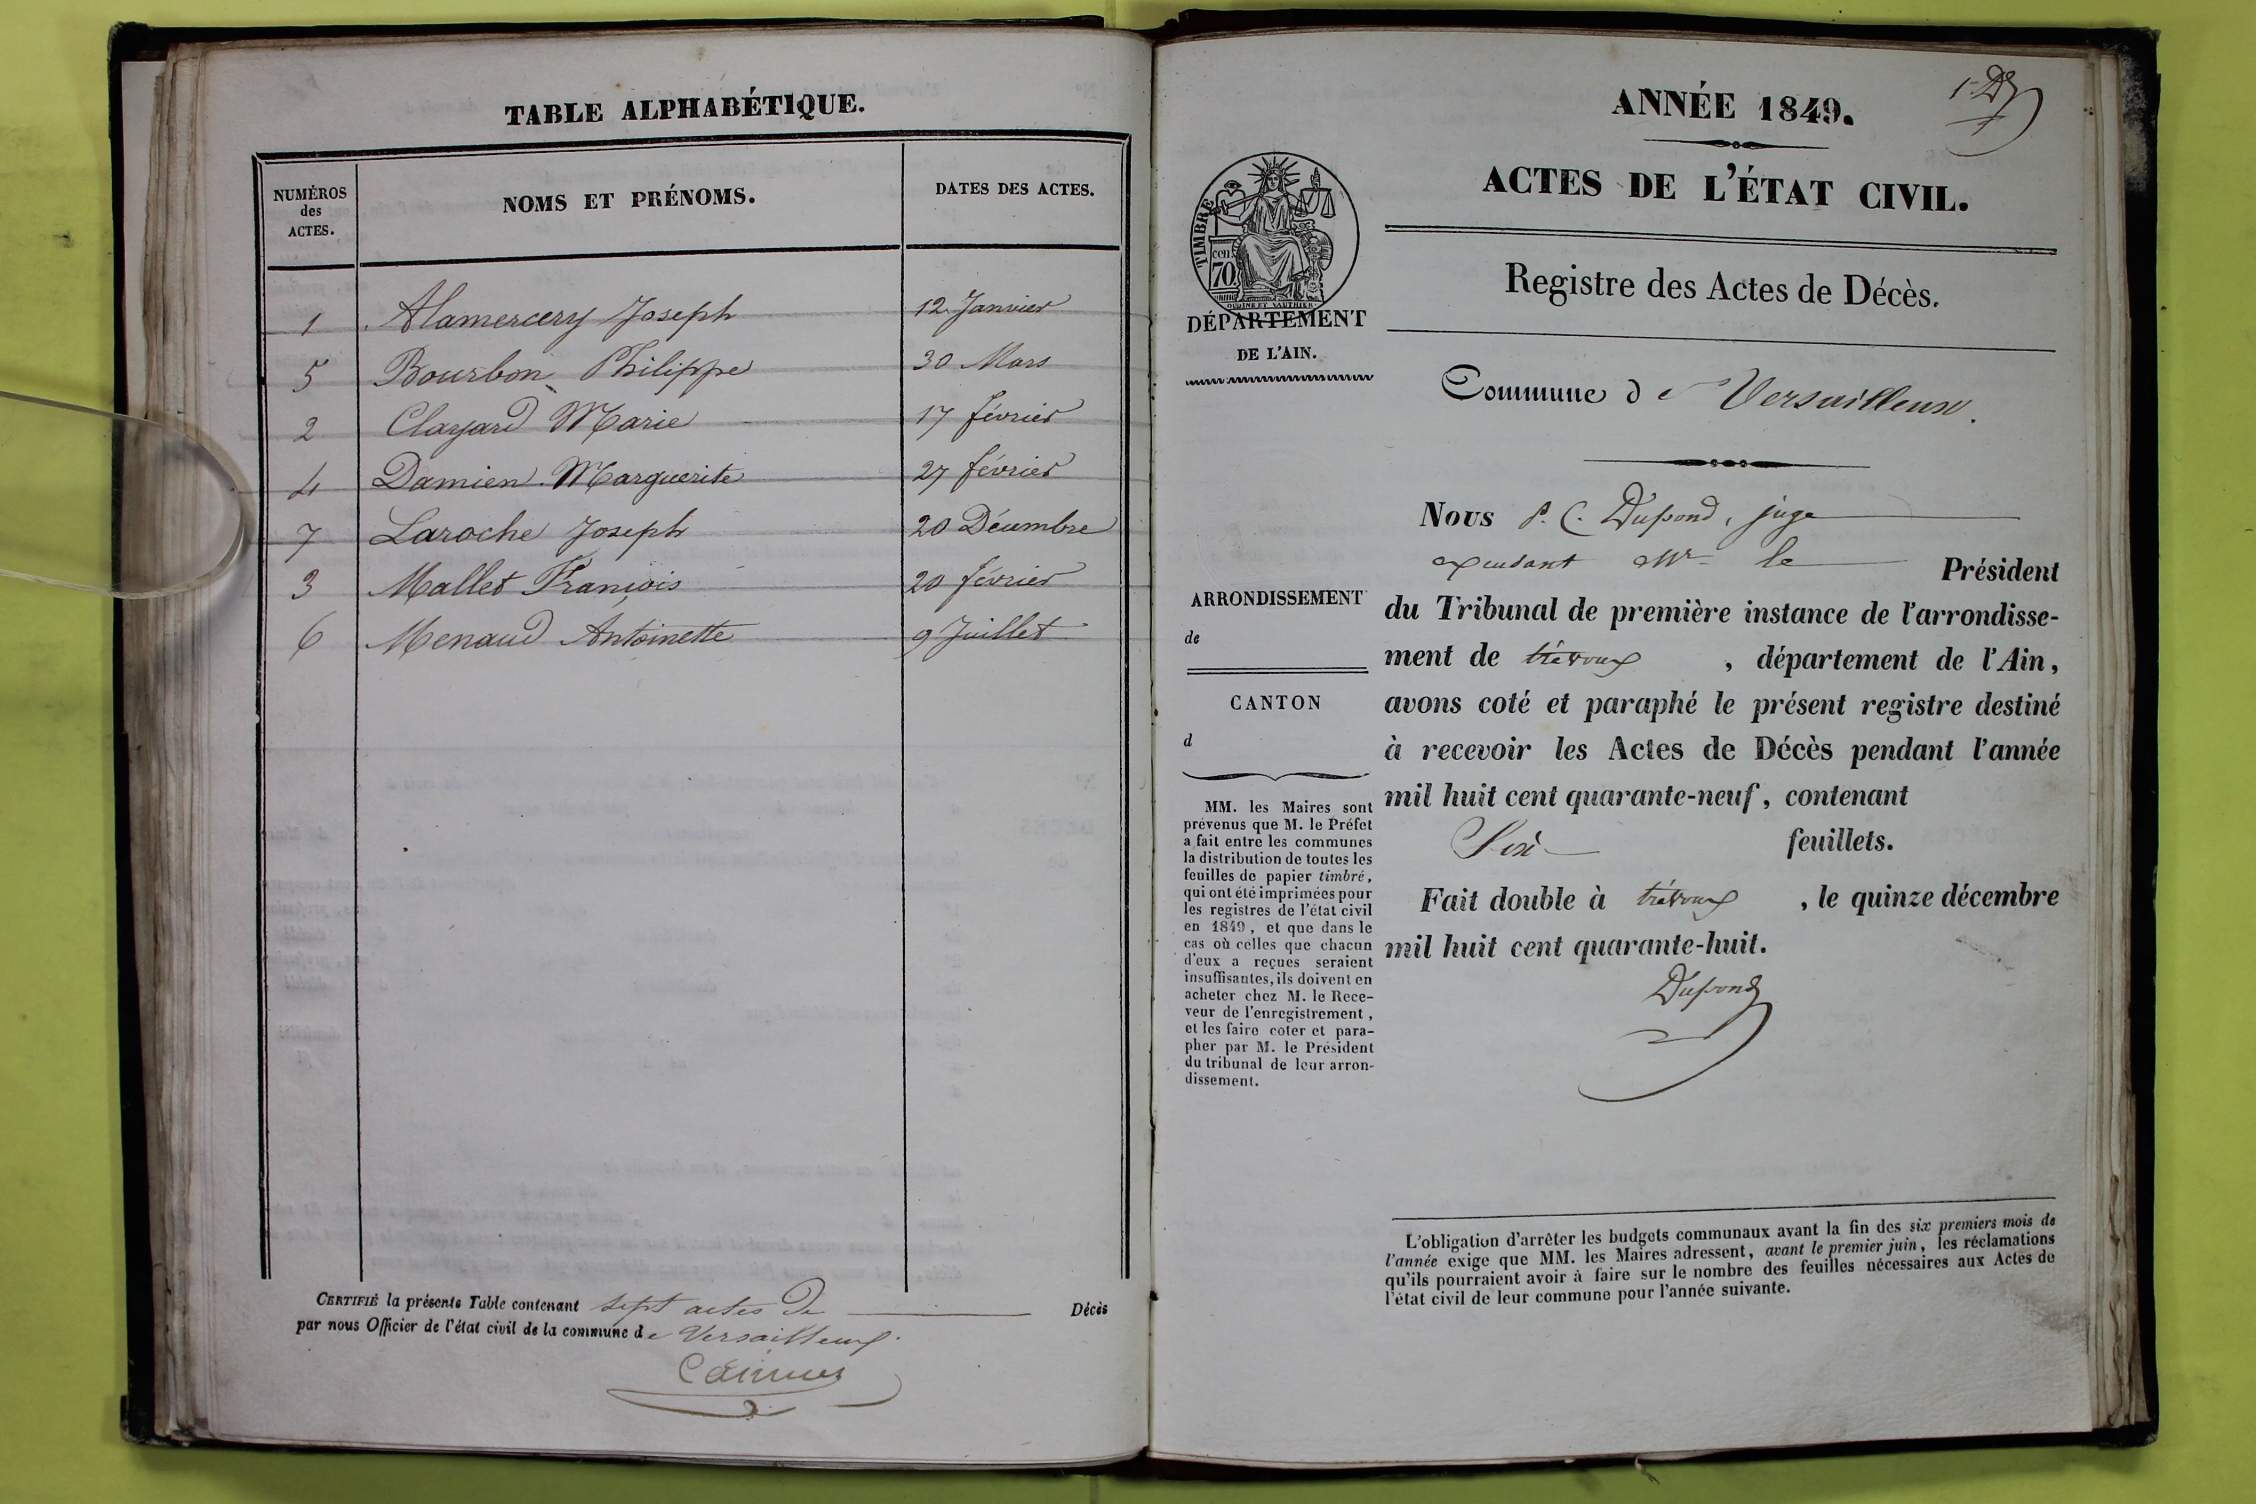 TABLE ALPHABÉTIQUE.
NUMÉROS des ACTES. NOMS ET PRÉNOMS. DATES DES ACTES.
1 Alamercery Joseph 12 Janvier
5 Bourbon Philippe 30 Mars
2 Clayard Marie 17 février
4 Damien Marguerite 27 février
7 Laroche Joseph 20 Décembre
3 Mallet François 20 février
6 Menaud Antoinette 9 Juillet
CERTIFIÉ la présente Table contenant sept actes de Décès
par nous Officier de l'état civil de la commune de Versailleux.
ANNÉE 1849.
ACTES DE L'ÉTAT CIVIL.
TIMBRE
cen. 70
OUDINÉ ET VAUTHIER
DÉPARTEMENT
DE L'AIN.
Registre des Actes de Décès.
Commune de Versailleux.
ARRONDISSEMENT
de
CANTON
d
MM. les Maires sont
prévenus que M. le Préfet
a fait entre les communes
la distribution de toutes les
feuilles de papier timbré,
qui ont été imprimées pour
les registres de l'état civil
en 1849, et que dans le
cas où celles que chacun
d'eux a reçues seraient
insuffisantes, ils doivent en
acheter chez M. le Rece-
veur de l'enregistrement,
et les faire coter et para-
pher par M. le Président
du tribunal de leur arron-
dissement.
Nous P. C. Dupond, juge
Mr le Président
du Tribunal de première instance de l'arrondisse-
ment de trévoux, département de l'Ain,
avons coté et paraphé le présent registre destiné
à recevoir les Actes de Décès pendant l'année
mil huit cent quarante-neuf, contenant
Six feuillets.
Fait double à trévoux, le quinze décembre
mil huit cent quarante-huit.
Dupond
L'obligation d'arrêter les budgets communaux avant la fin des six premiers mois de
l'année exige que MM. les Maires adressent, avant le premier juin, les réclamations
qu'ils pourraient avoir à faire sur le nombre des feuilles nécessaires aux Actes de
l'état civil de leur commune pour l'année suivante.